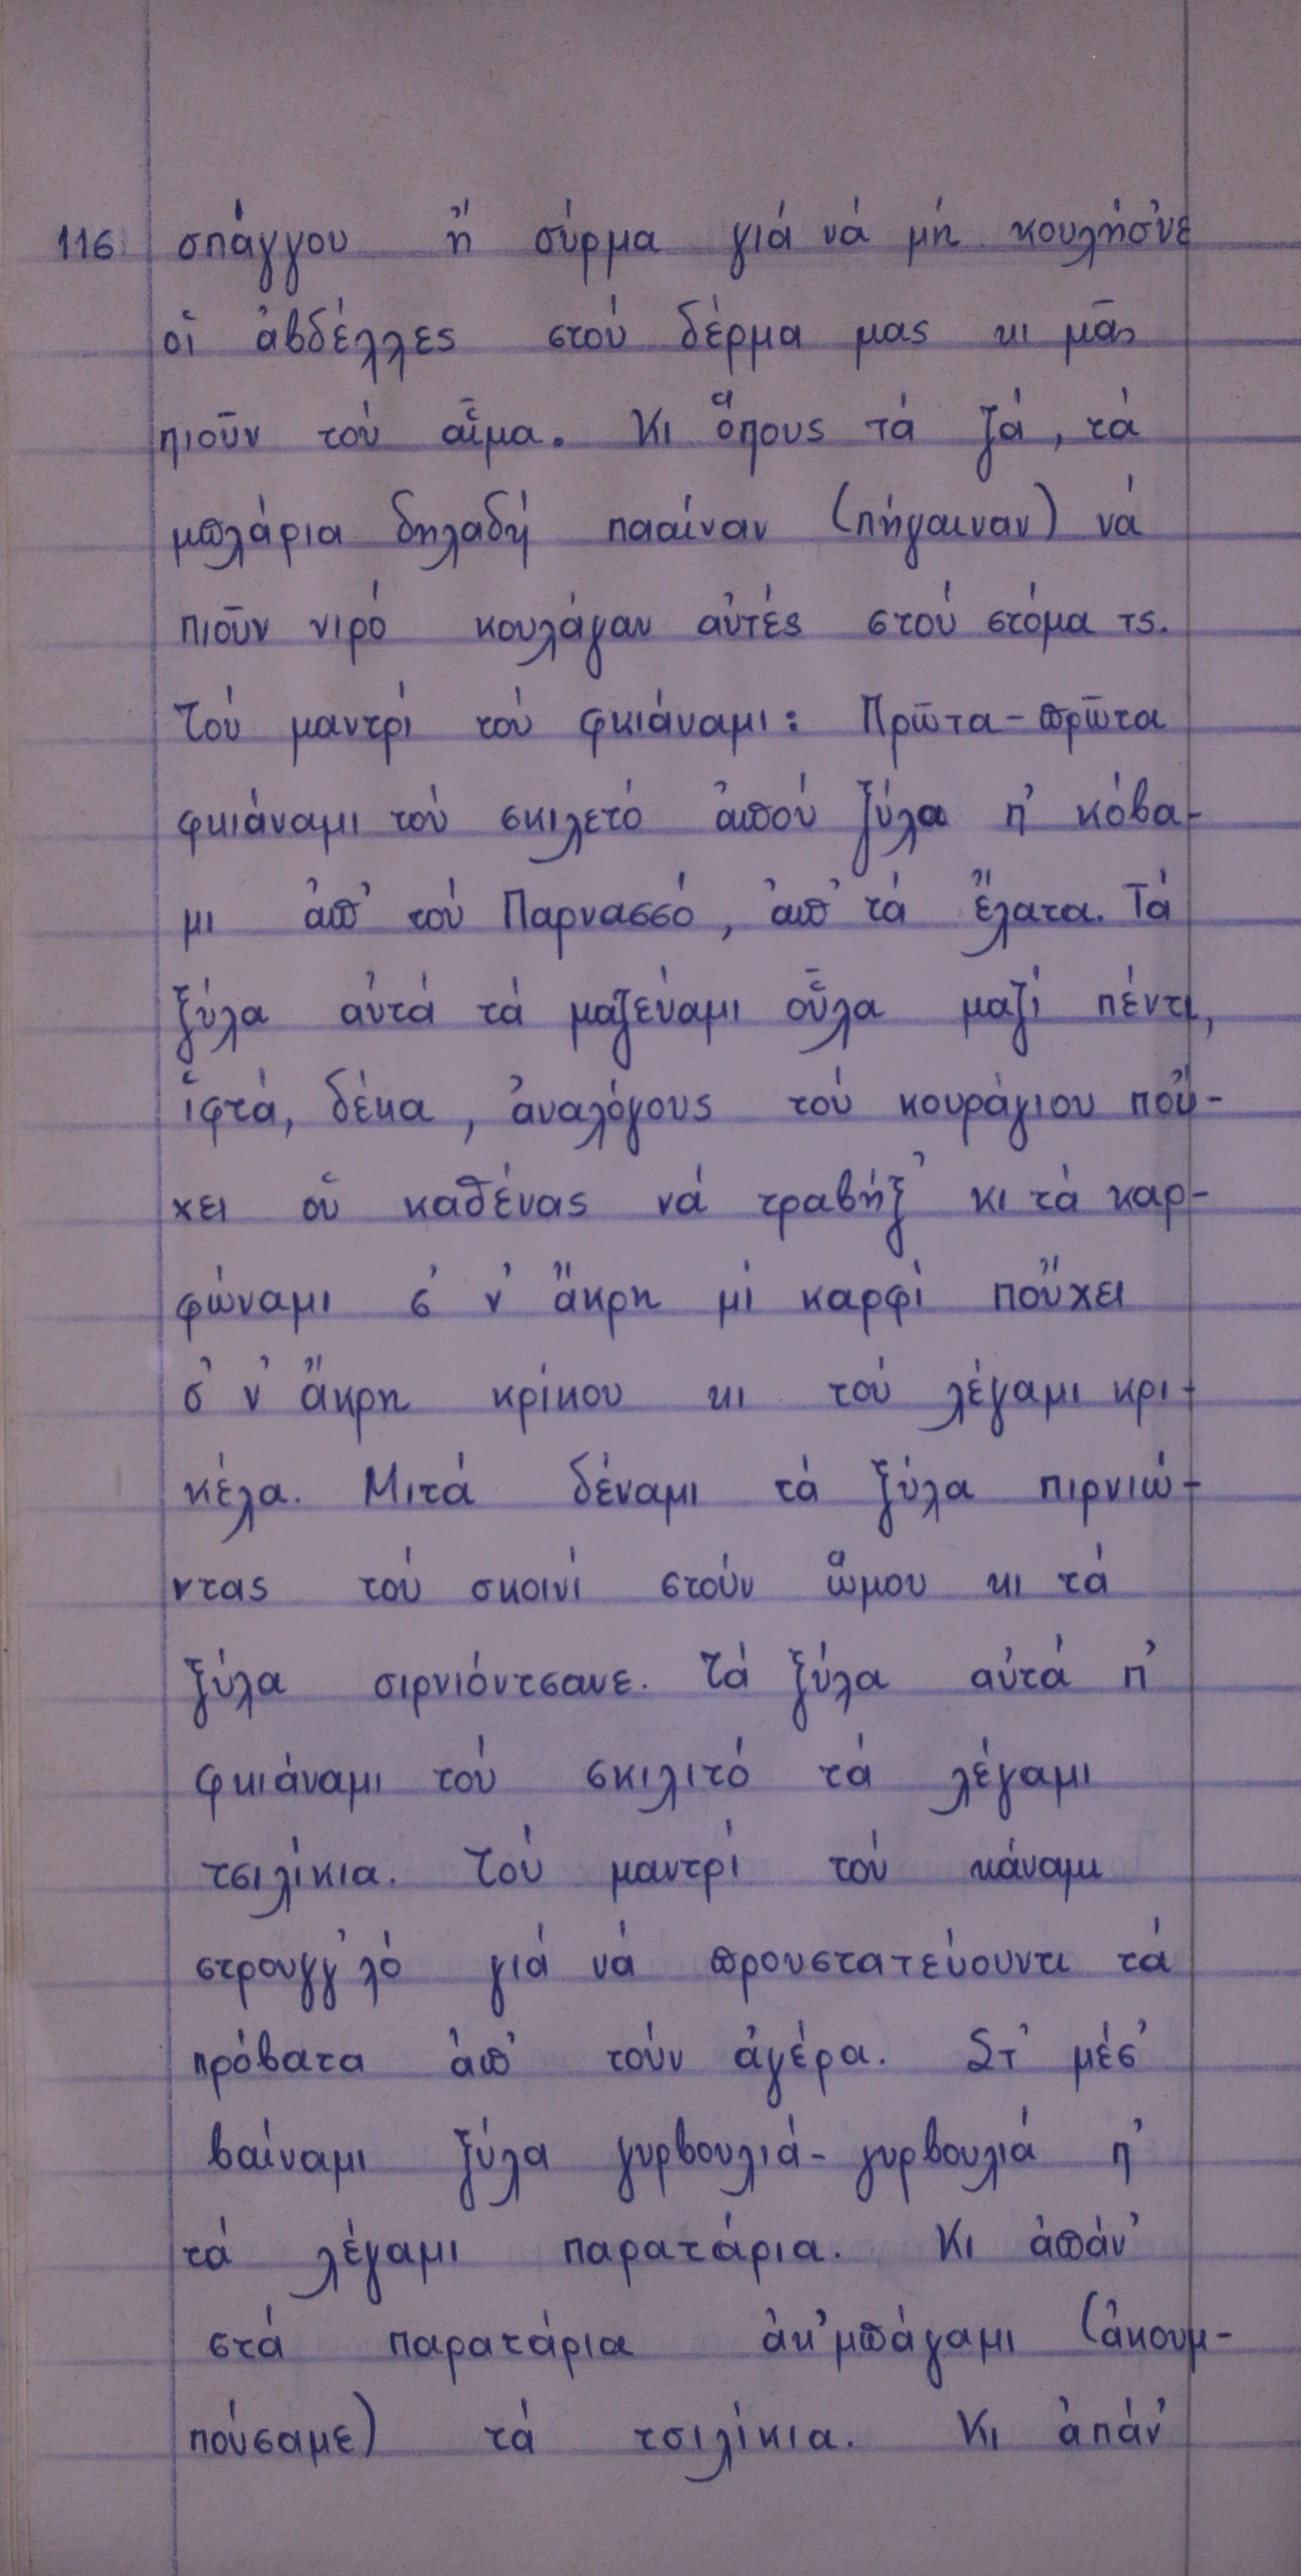 116 σπάγγου ἤ σύρμα γιά νά μή κουλήσ'νε
οἱ ἀβδέλλες στού δέρμα μας κι μᾶς
πιοῦν τού αἷμα. Κι ὅπους τά ζά, τά
μπλάρια δηλαδή πααίναν (πήγαιναν) νά
πιοῦν νιρό κουλάγαν αὐτές στού στόμα τς.
Τού μαντρί τού φκιάναμι: Πρῶτα-πρῶτα
φκιάναμι τού σκιλετό ἀπού ξύλα π' κόβα-
μι ἀπ' τού Παρνασσό, ἀπ' τά ἔλατα. Τά
ξύλα αὐτά τά μαζεύαμι οὗλα μαζί πέντι,
ἱφτά, δέκα, ἀναλόγους τού κουράγιου πού-
χει οὑ καθένας νά τραβήξ' κι τά καρ-
φώναμι σ' ν' ἄκρη μί καρφί πού̓χει
σ' ν' ἄκρη κρίκου κι τού λέγαμι κρι-
κέλα. Μιτά δέναμι τά ξύλα πιρνιώ-
ντας τού σκοινί στούν ὦμου κι τά
ξύλα σιρνιόντσανε. Τά ξύλα αὐτά π'
φκιάναμι τού σκιλιτό τά λέγαμι
τσιλίκια. Τού μαντρί τού κάναμι
στρουγγ'λό γιά νά προυστατεύουντι τά
πρόβατα ἀπ' τούν ἀγέρα. Στ' μέσ'
βαίναμι ξύλα γυρβουλιά-γυρβουλιά π'
τά λέγαμι παρατάρια. Κι ἀπάν'
στά παρατάρια ἀκ'μπάγαμι (ἀκουμ-
πούσαμε) τά τσιλίκια. Κι ἀπάν'